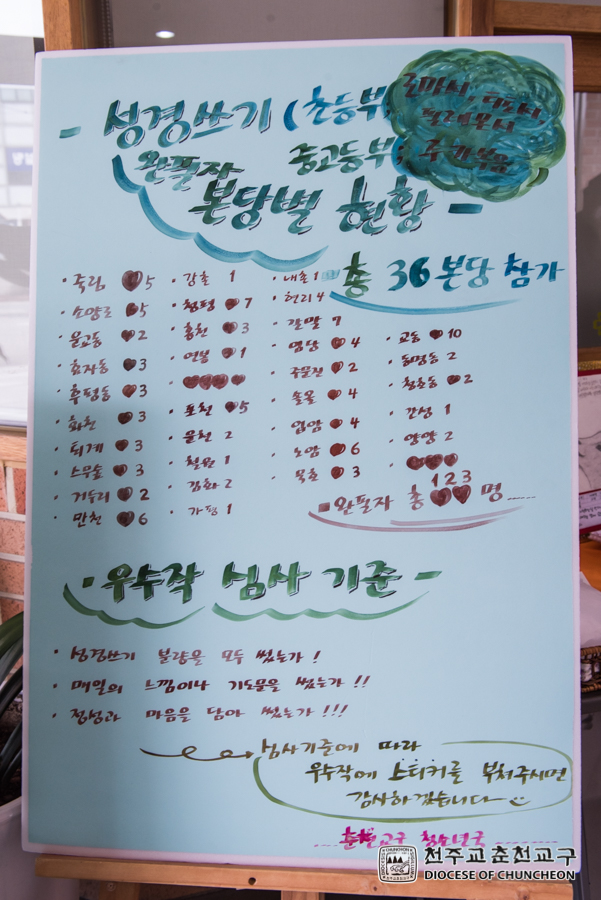 - 성경쓰기 (초등부,
로마서, 티토서,
필레몬서
완필자 중고등부,
루카복음
본당별 현황 -
총 36 본당 참가
· 죽림 ♥ 5
· 소양로 ♥ 5
· 운교동 ♥ 2
· 효자동 ♥ 3
· 후평동 ♥ 3
· 화천 ♥ 3
· 퇴계 ♥ 3
· 스무숲 ♥ 3
· 거두리 ♥ 2
· 만천 ♥ 6
· 강촌 1
· 청평 ♥ 7
· 홍천 ♥ 3
· 연봉 ♥ 1
· ♥♥♥♥
· 포천 ♥ 5
· 운천 2
· 철원 1
· 김화 2
· 가평 1
· 내촌 1
· 현리 4
· 갈말 7
· 임당 ♥ 4
· 주문진 ♥ 2
· 솔올 ♥ 4
· 입암 ♥ 4
· 노암 ♥ 6
· 묵호 ♥ 3
· 교동 ♥ 10
· 동명동 2
· 청호동 ♥ 2
· 간성 1
· 양양 2
· ♥♥♥
■ 완필자 총 123 ♥♥ 명
- 우수작 심사 기준 -
· 성경쓰기 분량을 모두 썼는가 !
· 매일의 느낌이나 기도문을 썼는가 !!
· 정성과 마음을 담아 썼는가 !!!
심사기준에 따라
우수작에 스티커를 부쳐주시면
감사하겠습니다
춘천교구 청소년국
천주교춘천교구
DIOCESE OF CHUNCHEON